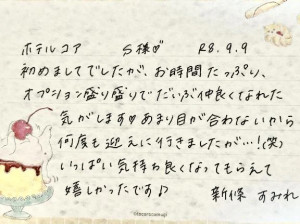 ホテルコア S様♡ R8.9.9
初めましてでしたが、お時間たっぷり、
オプション盛り盛りでだいぶ仲良くなれた
気がします♡あまり目が合わないから
何度も迎えに行きましたが…!(笑)
いっぱい気持ち良くなってもらえて
嬉しかったです♪ 新條 すみれ